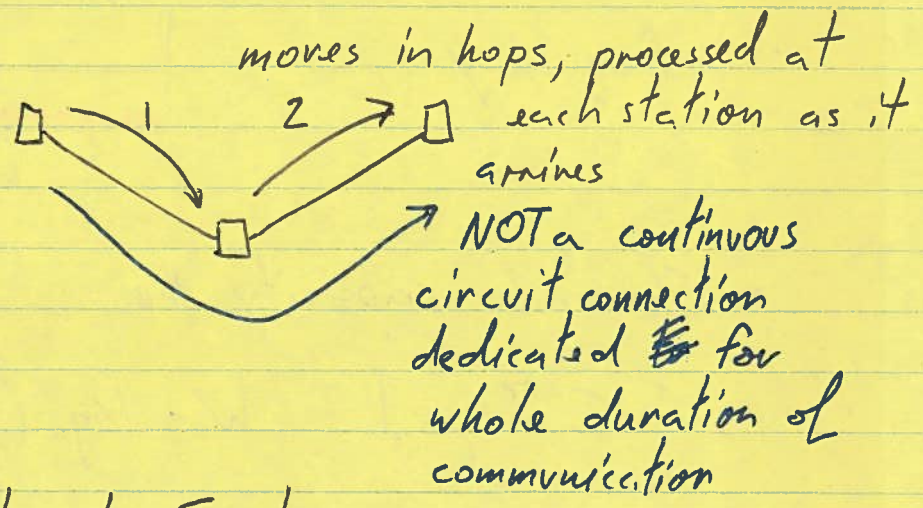 moves in hops, processed at
1 2 each station as it
arrives
NOT a continuous
circuit connection
dedicated for
whole duration of
communication